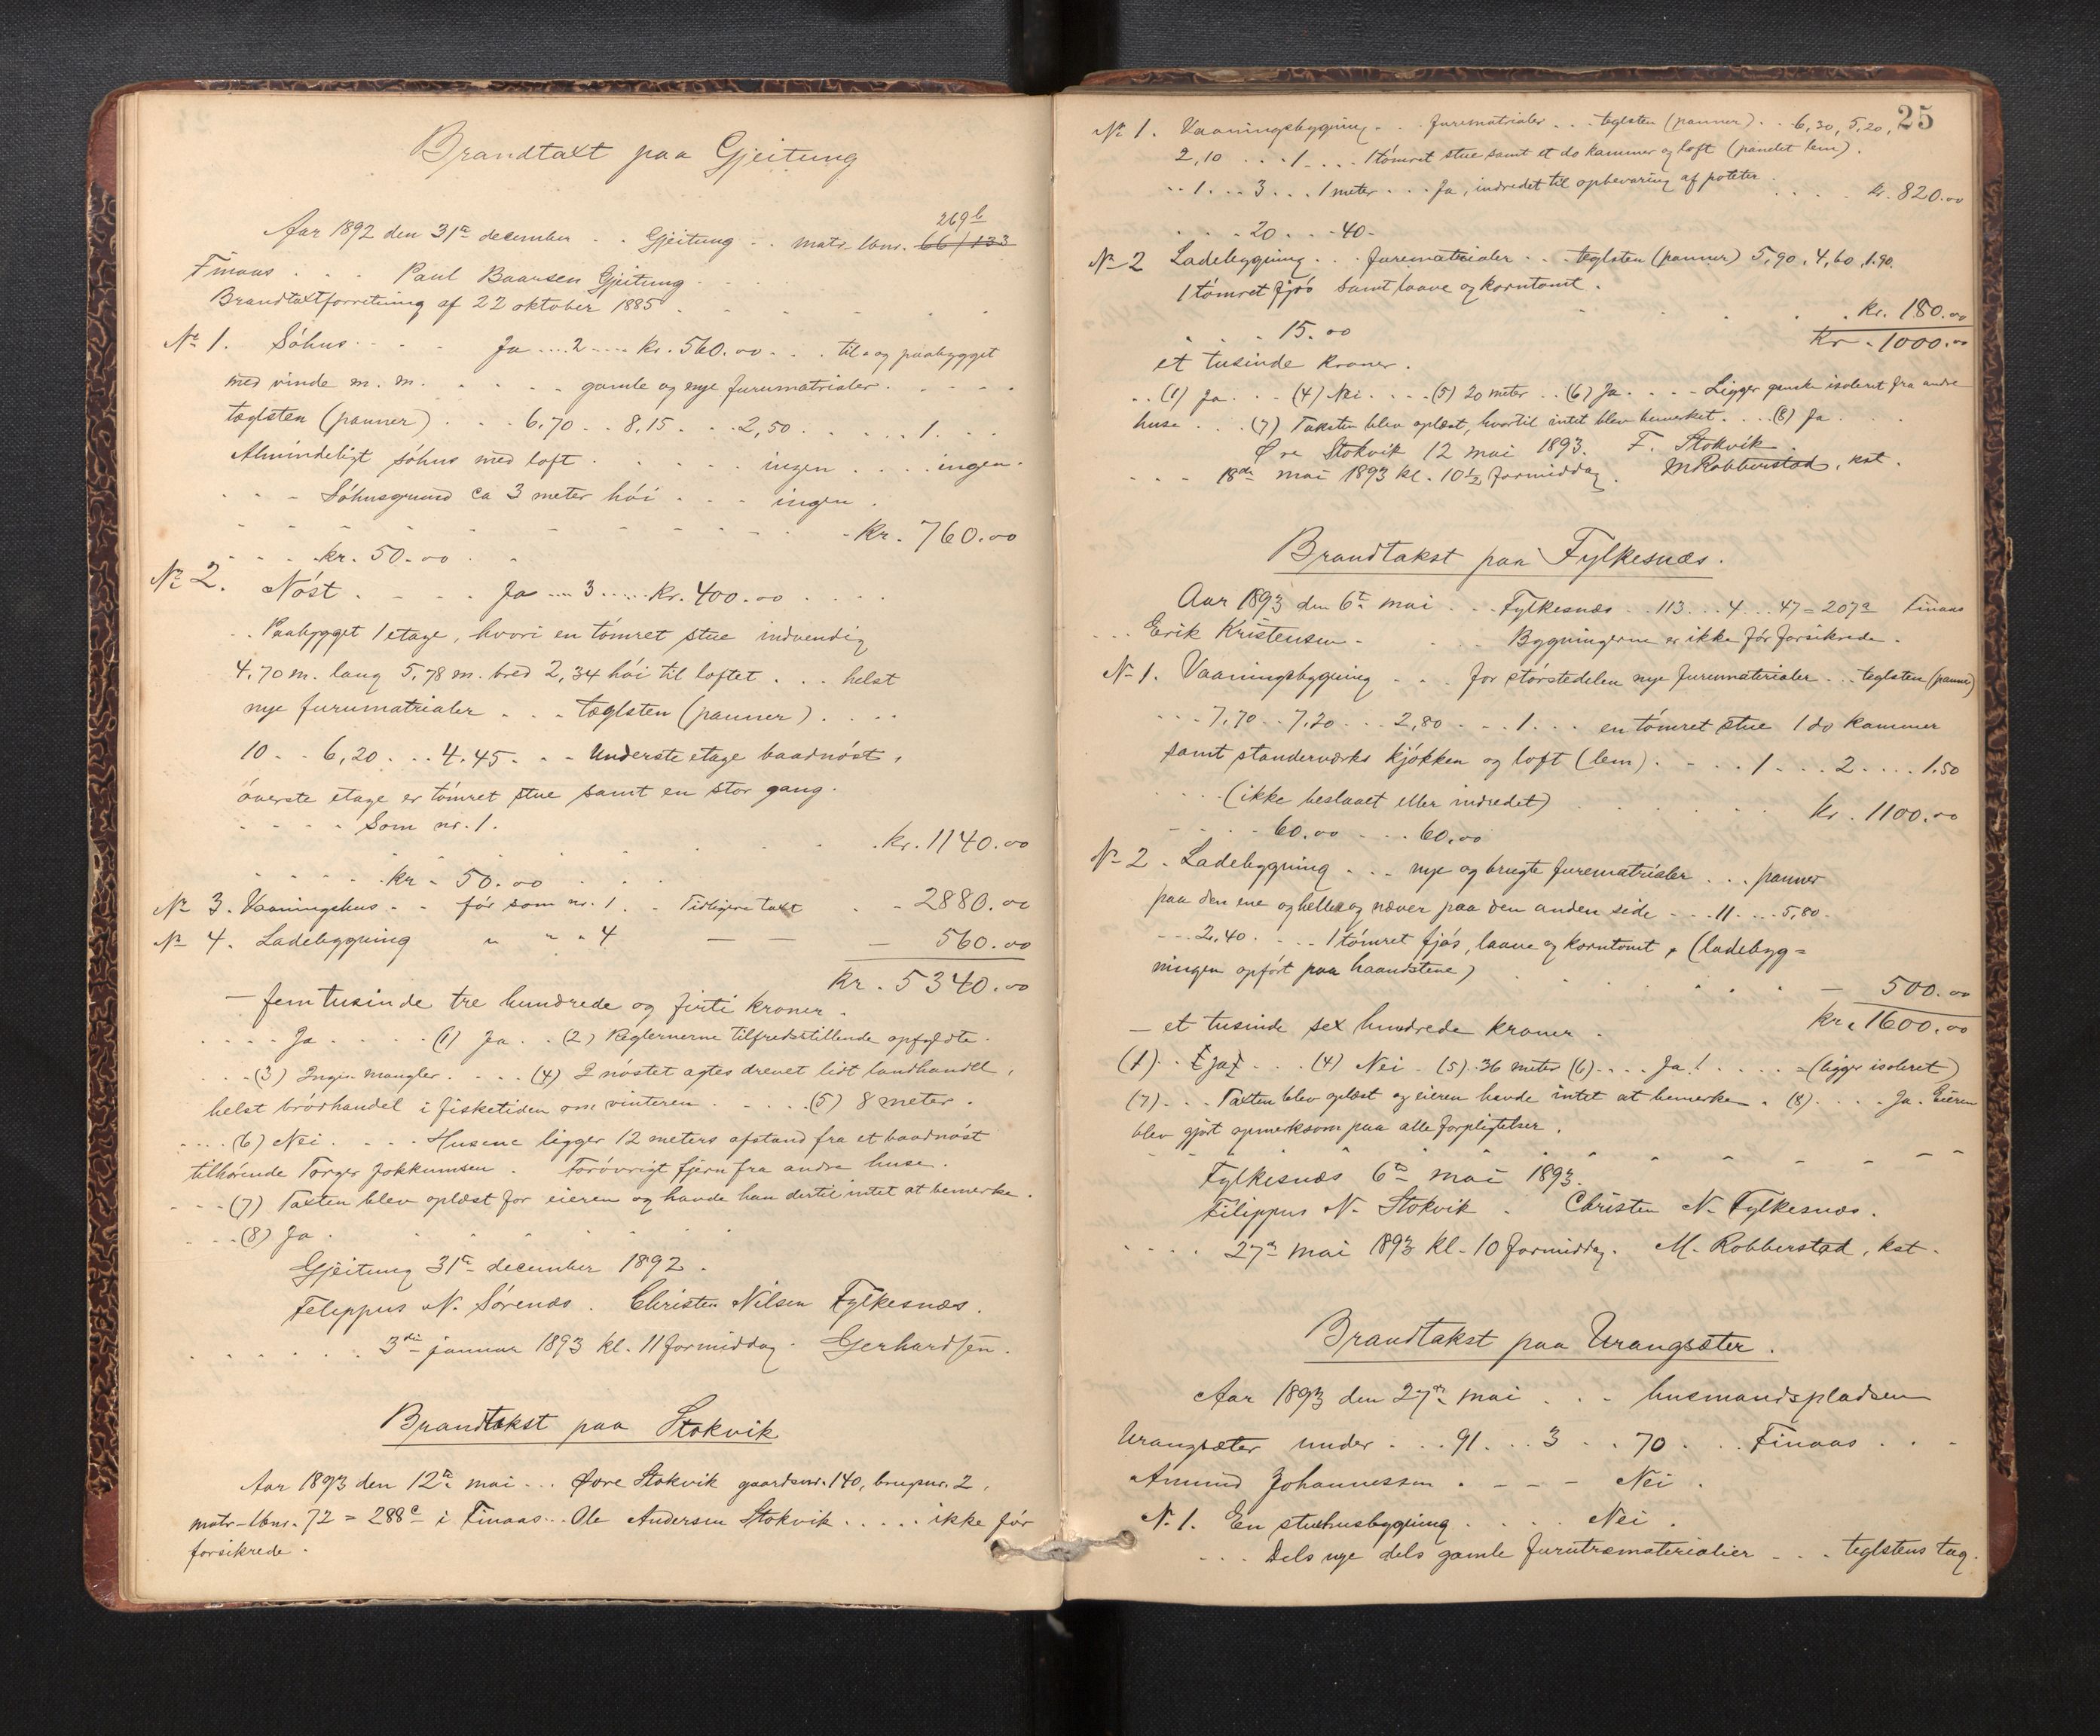 Brandtaxt paa Gjeitung
269b
Aar 1892 den 31te december . . Gjeitung . . matr. lbnr. 66/133
Finaas . . . Paul Baarsen Gjeitung . . .
Brandtaxtforretning af 22 oktober 1885 . . . . .
No 1. Söhus . . . . Ja .... 2 .... kr. 560.00 . . . til- og paabygget
med vinde m. m. . . . . . gamle og nye furumatrialer . . . . .
teglsten (panner) . . . 6,70 . . 8,15 . . . 2,50 . . . . . . 1 . . .
Almindeligt söhus med loft . . . . . . ingen . . . . ingen .
. . - Söhusgrund ca 3 meter höi . . . ingen .
kr. 760.00
. . . . kr. 50.00 . .
No 2. Nöst . . . . . Ja .... 3 ..... kr. 400.00 . . . .
. . Paabygget 1 etage, hvori en tömret stue indvendig
4,70 m. lang 5,78 m. bred 2,34 höi til loftet . . . helst
nye furumatrialer . . . teglsten (panner) . . . .
10 . . 6,20 . . . 4.45 . . . Underste etage baadnöst,
överste etage er tömret stue samt en stor gang.
. . . . Som nr. 1.
kr. 1140.00
. . . . . kr. 50.00 . . .
No 3. Vaaningshus . . för som nr. 1 . . Tidligere taxt . . 2880.00
No 4. Ladebygning " " " 4 — — — 560.00
kr. 5340.00
— femtusinde tre hundrede og firti kroner .
. . . . Ja . . . . . (1) Ja . . (2) Reglernerne tilfredsstillende opfyldte .
. . . (3) Ingen mangler . . . . (4) I nöstet agtes drevet lidt landhandel,
helst brödhandel i fisketiden om vinteren . . . . . (5) 8 meter .
. . . . (6) Nei . . . . Husene ligger 12 meters afstand fra et baadnöst
tilhörende Torger Jokkumsen . Forövrigt fjern fra andre huse .
. . . (7) Taxten blev oplæst for eieren og havde han dertil intet at bemerke .
. . . (8) Ja .
Gjeitung 31te december 1892 .
Filippus N. Sörenæs . Christen Nilsen Fylkesnæs .
. . . . . . . 3die januar 1893 kl. 11 formiddag . Gerhardsen .
Brandtakst paa Stokvik
Aar 1893 den 12te mai . . . Övre Stokvik gaardsnr. 140, brugsnr. 2,
matr-lbnr. 72 = 288c i Finaas . . Ole Andersen Stokvik . . . . . ikke för
forsikrede .
25
No 1. Vaaningsbygning . . . furumatrialer . . . teglsten (panner) . . 6,30, 5,20,
2,10 . . . . 1 . . . . 1 tömret stue samt et do kammer og loft (pandet lem) .
. . 1 . . . 3 . . . 1 meter . . . Ja, indredet til opbevaring af poteter .
kr. 820.00
. . . 20 . . . 40 .
No 2 Ladebygning . . . furematerialer . . . teglsten (panner) 5,90 . 4,60 . 1.90.
1 tömret fjös samt laave og korntomt .
kr. 180.00
. . . 15.00
Kr . 1000.00
et tusinde kroner .
. . (1) Ja . . . (4) Nei . . . . (5) 20 meter . . (6) Ja . . . . Ligger ganske isoleret fra andre
huse . . . (7) Taksten blev oplæst, hvortil intet blev bemerket . . . (8) Ja .
Övre Stokvik 12 mai 1893. F. Stokvik .
. . . 18de mai 1893 kl. 10½ formiddag . M Robberstad, kst .
Brandtakst paa Fylkesnæs .
Aar 1893 den 6te mai . . . Fylkesnæs . . 113 . . . 4 . . . 47 = 207a Finaas
. . . Erik Kristensen . . . . Bygningerne er ikke för forsikrede .
No 1. Vaaningsbygning . . . for störstedelen nye furumaterialer . . . teglsten (panner)
. . . 7,70 . . 7,20 . . . 2,80 . . . 1 . . . en tömret stue 1 do kammer
samt standerværks kjökken og loft (lem) . . . . 1 . . . 2 . . . . 1.50
. . . (ikke beslaaet eller indredet)
kr. 1100.00
. . . . 60.00 . . . 60.00
No 2 . Ladebygning . . . nye og brugte furematrialer . . . panner
paa den ene og heller og næver paa den anden side . . . 11 . . . 5,80 .
. . . 2,40 . . . . 1 tömret fjös, laave og korntomt, (ladebyg=
ningen opfört paa haandstene)
— 500.00
— et tusinde sex hundrede kroner .
kr. 1600.00
(1) . . [Ja] . . . (4) Nei . (5) 36 meter (6) . . . . Ja! . . . . (ligger isoleret)
(7) . . . Taxten blev oplæst og eieren havde intet at bemerke . (8) . . . . Ja . Eieren
blev gjort opmerksom paa alle forpligtelser .
Fylkesnæs 6te mai 1893.
Filippus N. Stokvik . Christen N. Fylkesnæs .
. . . . 27de mai 1893 kl. 10 formiddag . M. Robberstad, kst .
Brandtakst paa Urangsæter .
Aar 1893 den 27de mai . . . husmandspladsen
Urangsæter under . . . 91 . . . 3 . . 70 . . . Finaas . . .
Amund Johannessen . . . . Nei .
No 1. En stuehusbygning . . . . . Nei .
. . . Dels nye dels gamle furutræmaterialier . . . teglstens tag .